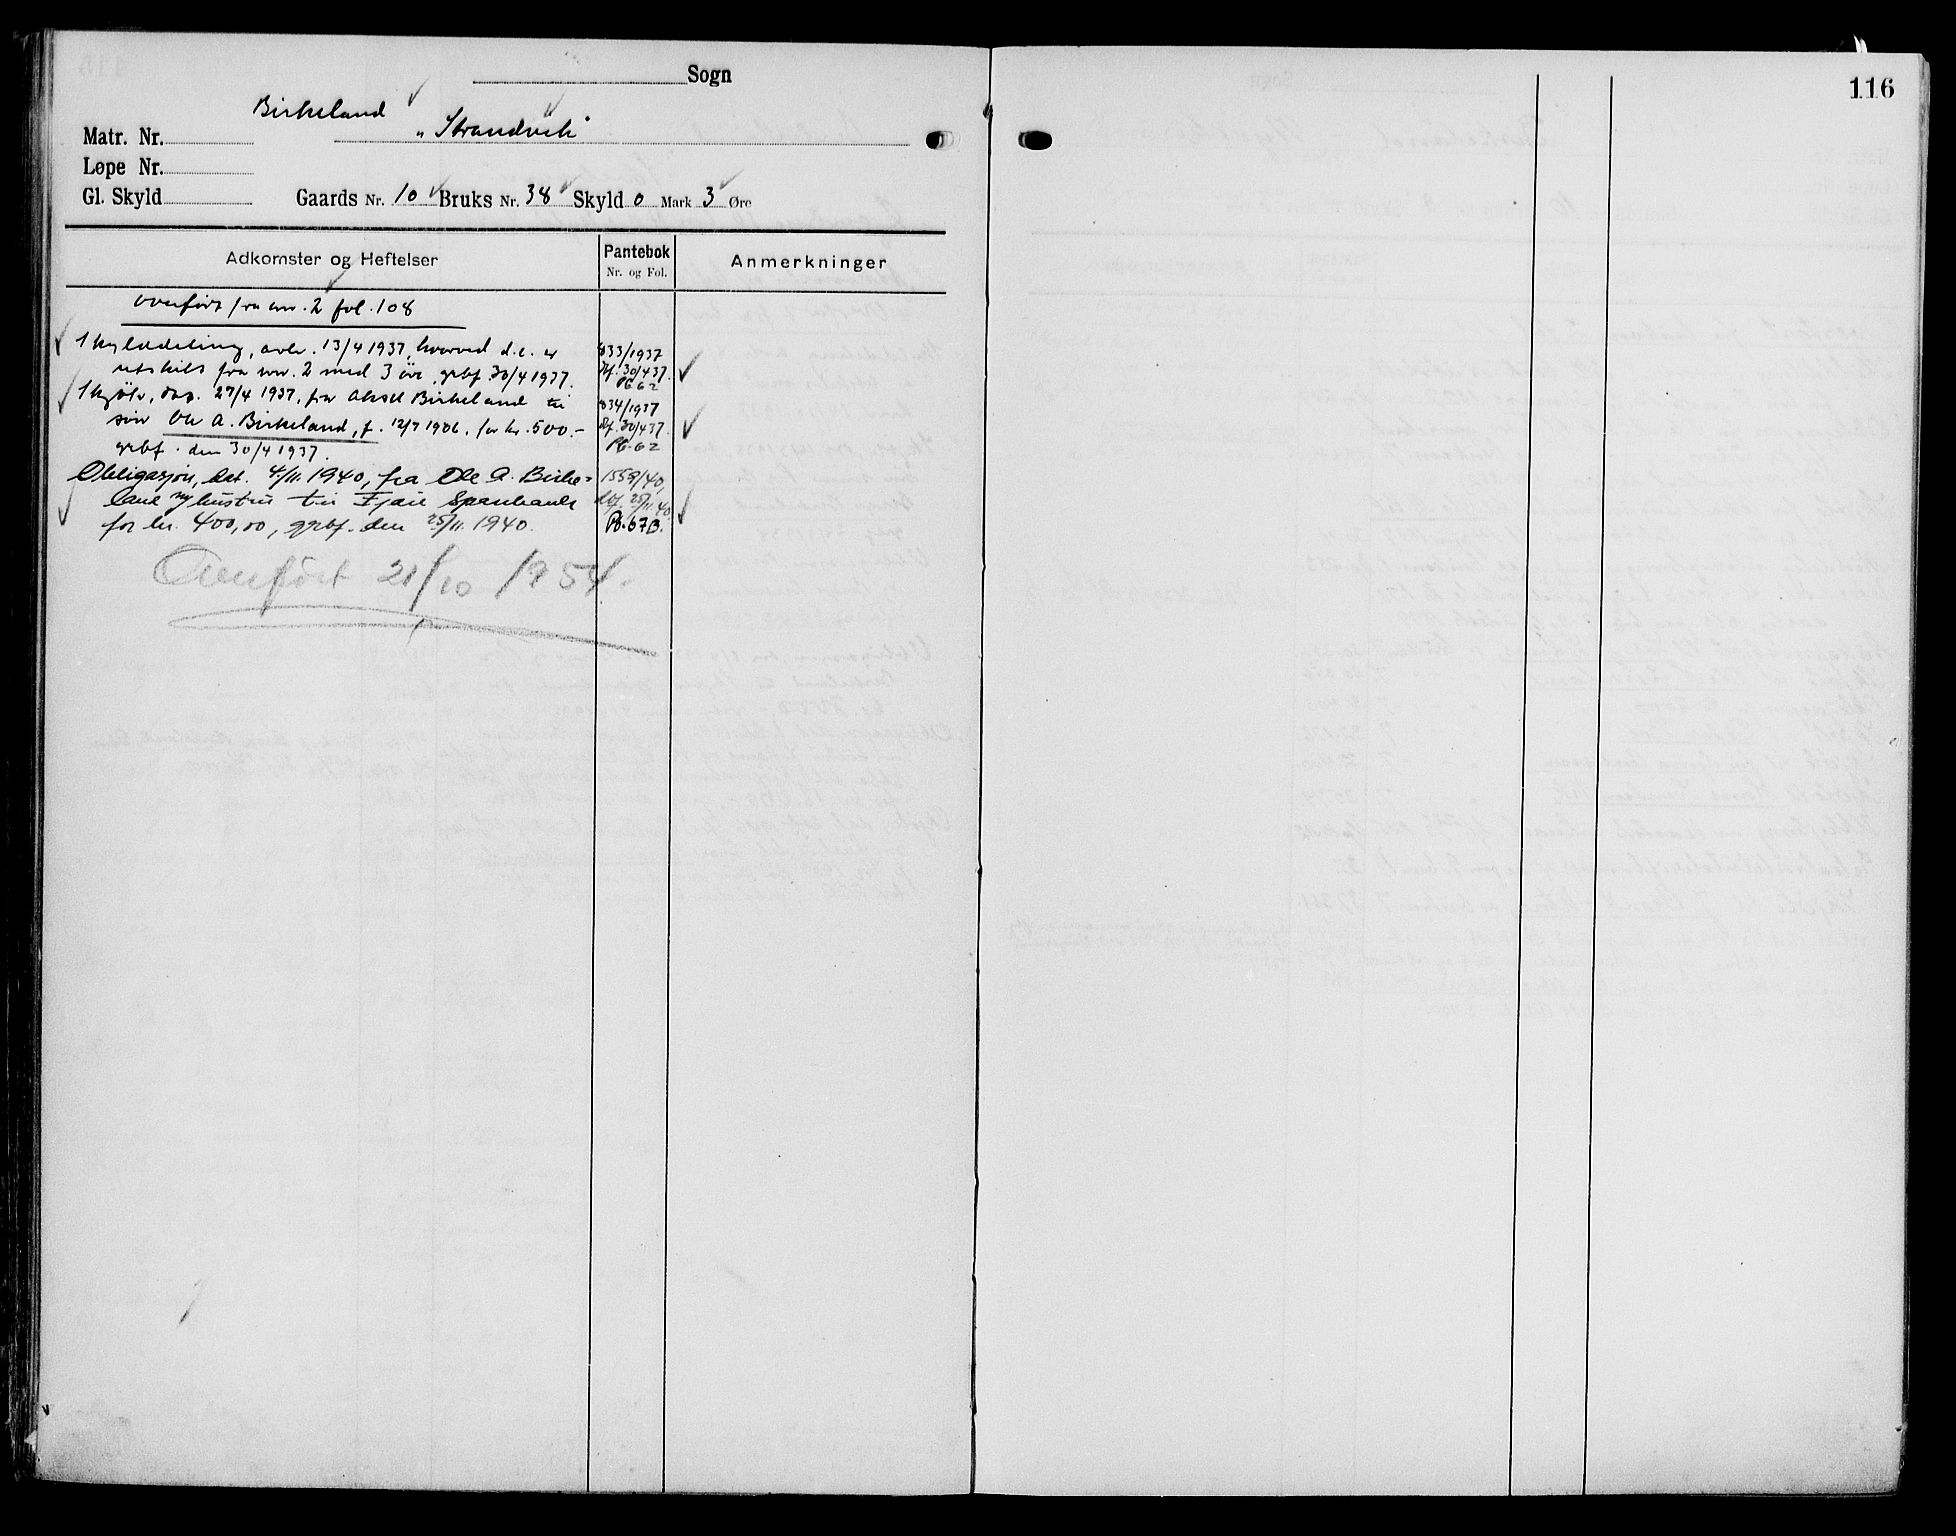 Sogn
116
Birkeland
Matr. Nr. „Strandvik"
Løpe Nr.
Gl. Skyld Gaards Nr. 10 Bruks Nr. 38 Skyld 0 Mark 3 Øre
Adkomster og Heftelser Pantebok Nr. og Fol. Anmerkninger
overført fra bnr. 2 fol. 108
Skylddeling, avh. 13/4 1937, hvorved d.e. er 833/1937
utskilt fra bnr. 2 med 3 øre, grbf. 30/4 1937. Df. 30/4 37.
Pb 62
Skjøte, dag. 27/4 1937, fra Aksel Birkeland til 834/1937
søn Ole A. Birkeland, f. 12/7 1906. for kr. 500.- Df. 30/4 37.
grbf. den 30/4 1937. Pb 62
Obligasjon, dat. 4/11. 1940, fra Ole A. Birke= 1559/40,
land og hustru til Fjære Sparebank dbf. 25/11. 40
for kr. 400,00, grbf. den 25/11. 1940. Pb. 67B.
Overført 21/10 1954.